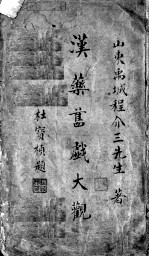 山東禹城程介三先生 著
漢藥舊戲大觀
杜寳楨題